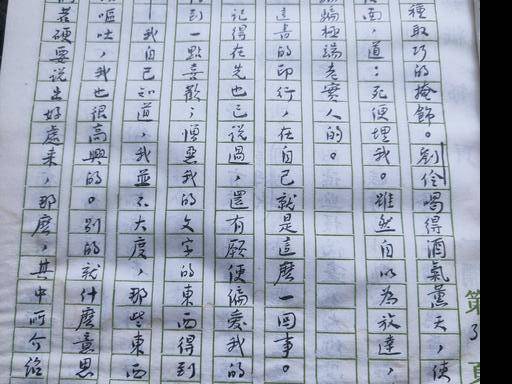 種取巧的掩飾。劉伶喝得酒氣薰天，使
面，道：死便埋我。雖然自以為放達，
騙極端老實人的。
這書的印行，在自己就是這麼一回事。
記得在先也已說過，還有願使偏愛我的
到一點喜歡；憎惡我的文字的東西得到
我自己知道，我並不大度，那些東西
嘔吐，我也很高興的。別的就什麼意思
若硬要說出好處來，那麼，其中所介紹
第
3
頁